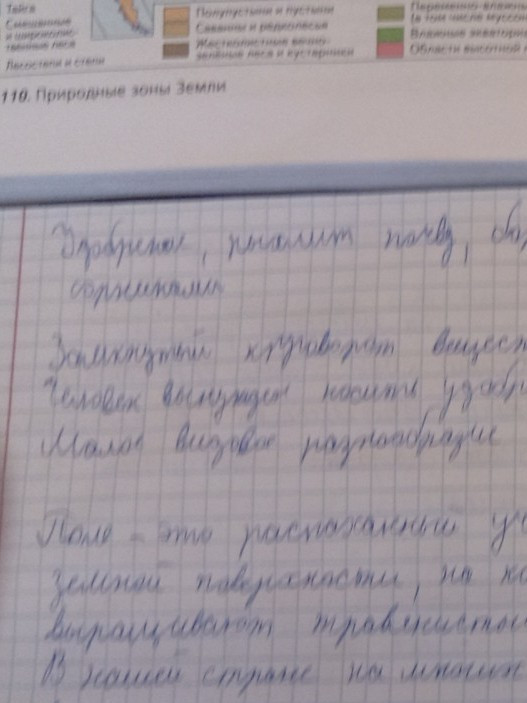 Тайга
Смешанные
и широколис-
твенные леса
Лесостепи и степи
Полупустыни и пустыни
Саванны и редколесья
Жестколистные вечно-
зелёные леса и кустарники
Переменно-влажн
(в том числе муссон
Влажные экватори
Области высотной п
110. Природные зоны Земли
Удобрение, рыхлит почву, бо
сорняками
Замкнутый круговорот вещест
Человек вынужден носить удобр
Малое видовое разнообразие
Поле - это распаханный уч
земной поверхности, на ко
выращивают травянистой
В нашей стране на многих